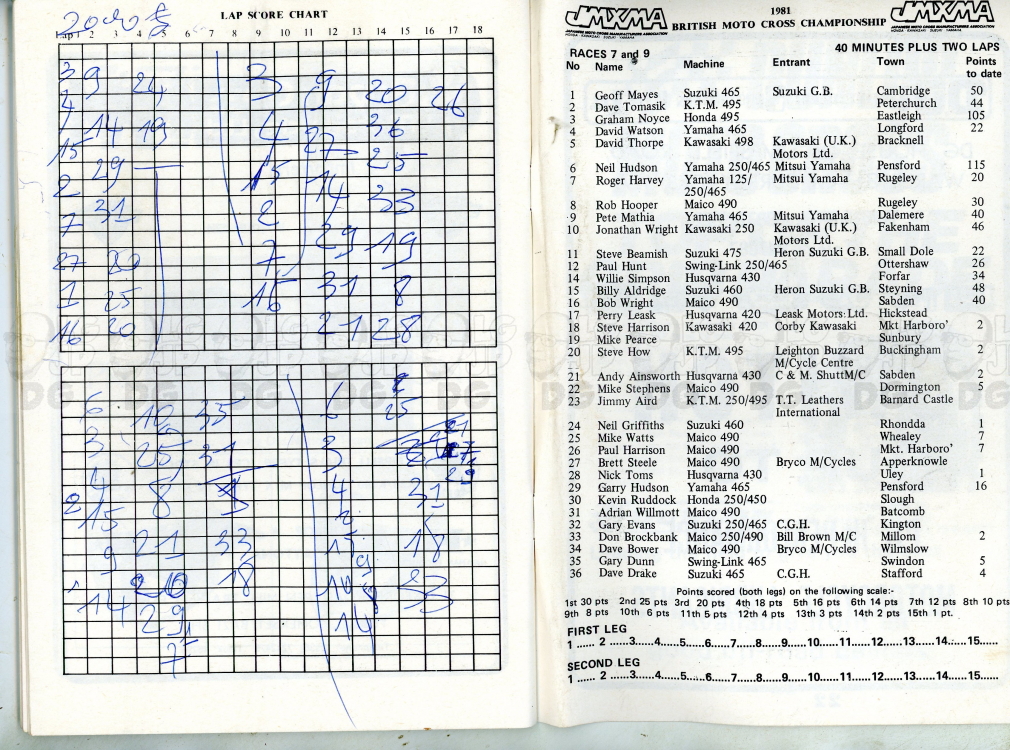 LAP SCORE CHART
Lap 1 2 3 4 5 6 7 8 9 10 11 12 13 14 15 16 17 18
3 9 24 3 9 20 26
4 4
14 19 27 36
15 29 15 25
2 31 2 14 33
7 7 29 19
27 20
1 25 16 31 8
16 20 21 28
6 10 35 6 25
3 25 31 3
4 8 4 31
2 15
9 21 33 15 18
14 20 18 10 33
29 14
JMXMA
JAPANESE MOTO CROSS MANUFACTURERS ASSOCIATION
HONDA KAWASAKI SUZUKI YAMAHA
1981
BRITISH MOTO CROSS CHAMPIONSHIP
JMXMA
JAPANESE MOTO CROSS MANUFACTURERS ASSOCIATION
HONDA KAWASAKI SUZUKI YAMAHA
RACES 7 and 9 40 MINUTES PLUS TWO LAPS
No Name Machine Entrant Town Points to date
1 Geoff Mayes Suzuki 465 Suzuki G.B. Cambridge 50
2 Dave Tomasik K.T.M. 495 Peterchurch 44
3 Graham Noyce Honda 495 Eastleigh 105
4 David Watson Yamaha 465 Longford 22
5 David Thorpe Kawasaki 498 Kawasaki (U.K.) Bracknell
Motors Ltd.
6 Neil Hudson Yamaha 250/465 Mitsui Yamaha Pensford 115
7 Roger Harvey Yamaha 125/ Mitsui Yamaha Rugeley 20
250/465
8 Rob Hooper Maico 490 Rugeley 30
9 Pete Mathia Yamaha 465 Mitsui Yamaha Dalemere 40
10 Jonathan Wright Kawasaki 250 Kawasaki (U.K.) Fakenham 46
Motors Ltd.
11 Steve Beamish Suzuki 475 Heron Suzuki G.B. Small Dole 22
12 Paul Hunt Swing-Link 250/465 Ottershaw 26
14 Willie Simpson Husqvarna 430 Forfar 34
15 Billy Aldridge Suzuki 460 Heron Suzuki G.B. Steyning 48
16 Bob Wright Maico 490 Sabden 40
17 Perry Leask Husqvarna 420 Leask Motors: Ltd. Hickstead
18 Steve Harrison Kawasaki 420 Corby Kawasaki Mkt Harboro' 2
19 Mike Pearce Sunbury
20 Steve How K.T.M. 495 Leighton Buzzard Buckingham 2
M/Cycle Centre
21 Andy Ainsworth Husqvarna 430 C & M. ShuttM/C Sabden 2
22 Mike Stephens Maico 490 Dormington 5
23 Jimmy Aird K.T.M. 250/495 T.T. Leathers Barnard Castle
International
24 Neil Griffiths Suzuki 460 Rhondda 1
25 Mike Watts Maico 490 Whealey 7
26 Paul Harrison Maico 490 Mkt. Harboro' 7
27 Brett Steele Maico 490 Bryco M/Cycles Apperknowle
28 Nick Toms Husqvarna 430 Uley 1
29 Garry Hudson Yamaha 465 Pensford 16
30 Kevin Ruddock Honda 250/450 Slough
31 Adrian Willmott Maico 490 Batcomb
32 Gary Evans Suzuki 250/465 C.G.H. Kington
33 Don Brockbank Maico 250/490 Bill Brown M/C Millom 2
34 Dave Bower Maico 490 Bryco M/Cycles Wilmslow
35 Gary Dunn Swing-Link 465 Swindon 5
36 Dave Drake Suzuki 465 C.G.H. Stafford 4
Points scored (both legs) on the following scale:-
1st 30 pts 2nd 25 pts 3rd 20 pts 4th 18 pts 5th 16 pts 6th 14 pts 7th 12 pts 8th 10 pts
9th 8 pts 10th 6 pts 11th 5 pts 12th 4 pts 13th 3 pts 14th 2 pts 15th 1 pt.
FIRST LEG
1 ...... 2 ......3......4......5......6......7......8......9......10......11......12......13......14......15......
SECOND LEG
1 ...... 2 ......3......4......5......6......7......8......9......10......11......12......13......14......15......